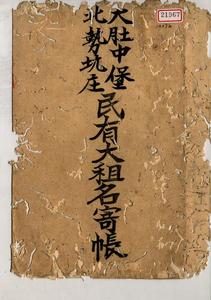 大肚中堡
北勢坑庄
民有大租名寄帳
21967